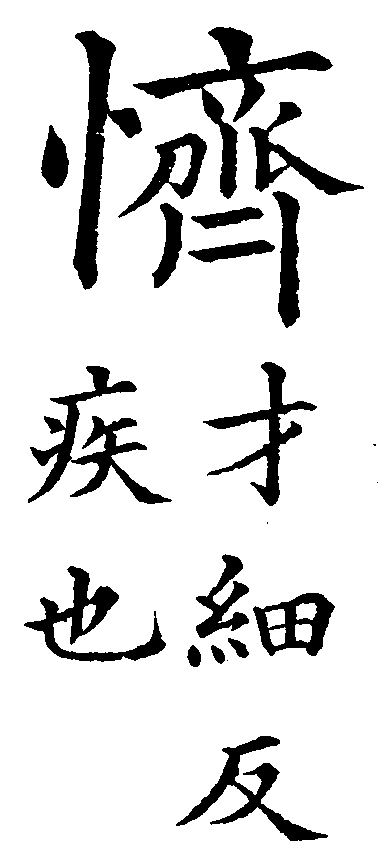 懠
才細反
疾也